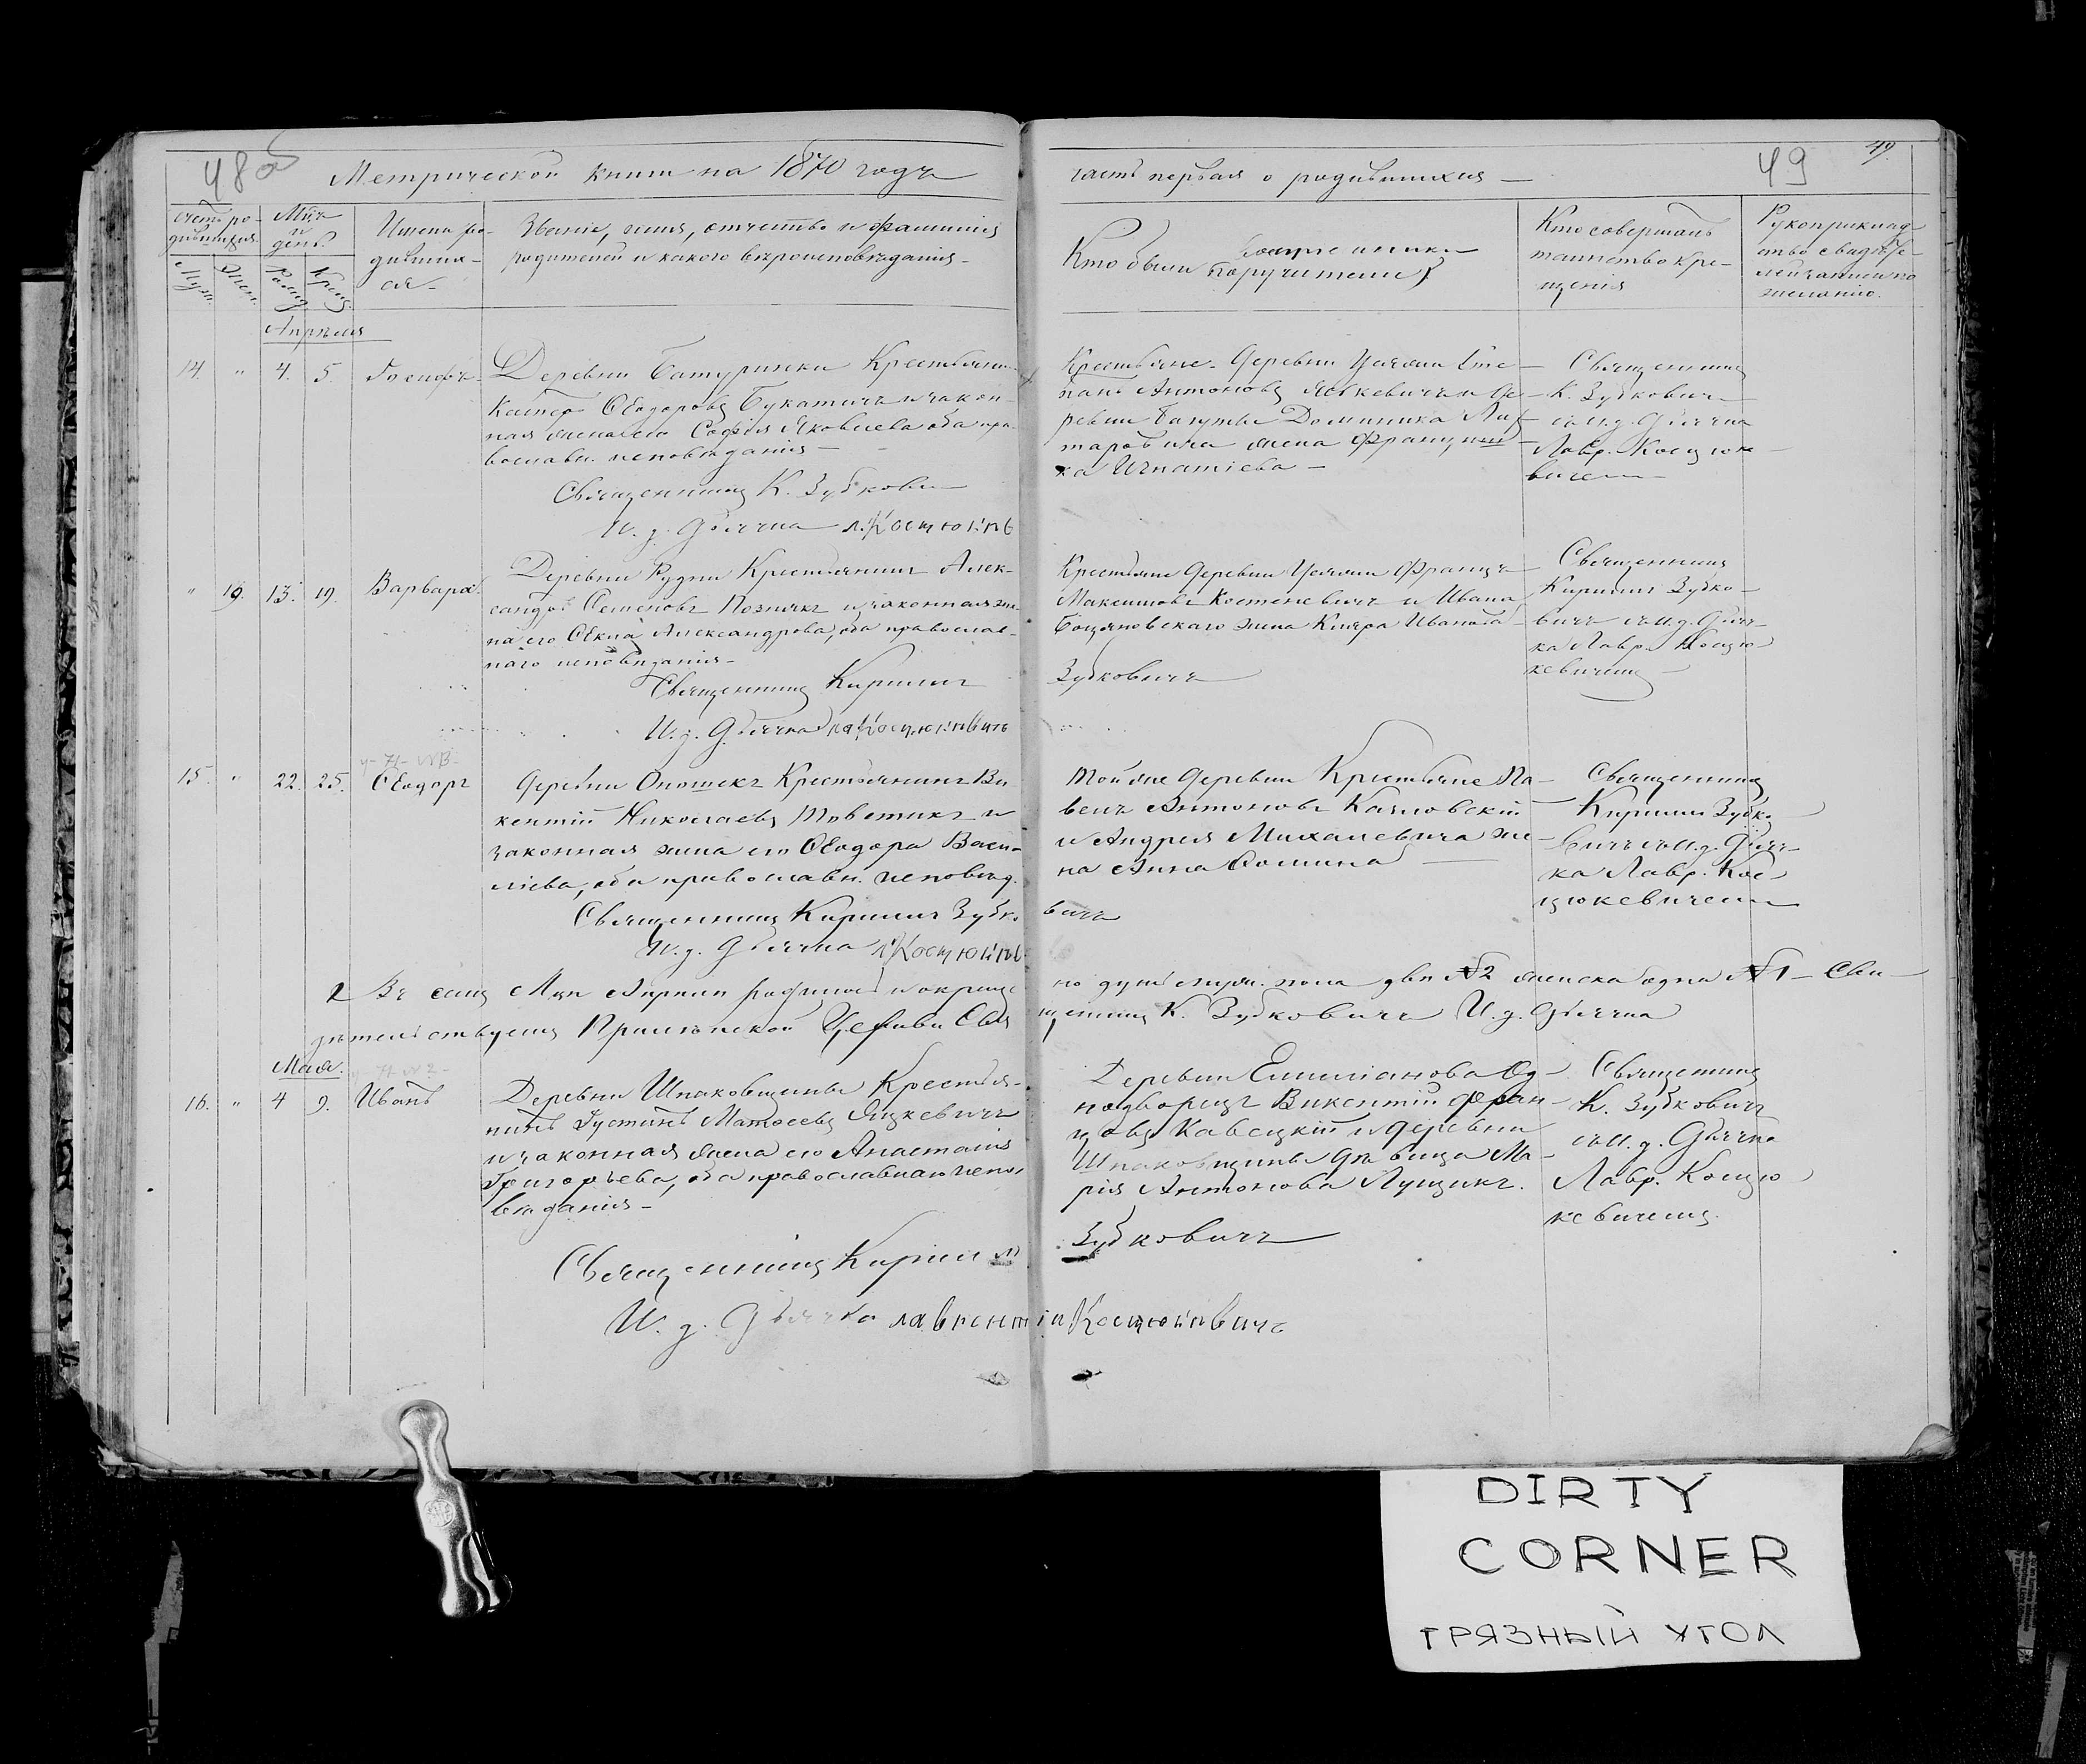 48 об
Метрической книги на 1870 годъ
часть первая о родившихся —
49
49
Счетъ ро-
дившихся.
Муж.
Жен.
Мцъ
и
день.
Рожд.
Крещ.
Имена ро-
дивших-
ся.
Званіе, имя, отчество и фамилія
родителей и какого вѣроисповѣданія.
Кто были воспріемники
поручители)
Кто совершалъ
таинство кре-
щенія
Рукоприклад-
ство свидѣте-
лей записи по
желанію.
Апрѣля
14. " 4. 5. Іосифъ.
Деревни Батуринки Крестьянинъ
Ѳеодоровъ Букатичъ и закон-
ная жена его Софія Яковлева оба пра-
вославн. исповѣданія —
Священникъ К. Зубкови
И. д. Дьячка Л. Костюкев
Крестьяне деревни Сте-
панъ Антоновъ и де-
ревни Доминика
жена Францишка
ка Игнатіева —
Священникъ
К. Зубкович
съ и. д. Дьячка
Лавр. Косцюке-
вичемъ
" 19. 13. 19. Варвара.
Деревни Рудни Крестьянинъ Алек-
сандръ Семеновъ Познякъ и законная же-
на его Ѳекла Александрова, оба православ-
наго исповѣданія —
Священникъ Кириллъ
И. д. Дьячка Костюкевичъ
Крестьяне деревни Францъ
Максимовъ Костеневичъ и Ивана
жена Клара Иванова
Зубковичъ
Священникъ
Кириллъ Зубко-
вичъ съ и. д. Дьяч-
ка Лавр. Косцю
кевичемъ
15. " 22. 25. Ѳеодоръ
Деревни Опошекъ Крестьянинъ Ви-
кентій Николаевъ Товстикъ и
законная жена его Ѳеодора Васи-
ліева, оба православн. исповѣд.
Священникъ Кириллъ Зубко
вичъ
И. д. Дьячка Л. Костюкев
Той же деревни Крестьяне Па-
велъ Антоновъ Козловскій
и Андрея Михалевича же-
на Анна Фомина —
Священникъ
Кириллъ Зубко
вичъ съ и. д. Дьяч-
ка Лавр. Кос
цюкевичемъ
Въ семъ Мцѣ Апрѣлѣ родилось и окреще
но душъ муж. пола два №2 женска одна №1 — Сви
дѣтельствуемъ Церкви Свя
щенникъ К. Зубковичъ И. д. Дьячка
Мая.
16. " 4 9. Иванъ
Деревни Шпаковщины Крестья-
нинъ Іустинъ Матѳеевъ Яцкевичъ
и законная жена его Анастасія
Григорьева, оба православнаго испо
вѣданія —
Священникъ Кирилл
Зубковичъ
И. д. Дьячка Лаврентій Костюкевичъ
Деревни Емиліанова Од-
нодворецъ Викентій Фран-
цовъ Кавецкій и деревни
Шпаковщины дѣвица Ма-
рія Антонова Лущикъ.
Священникъ
К. Зубковичъ
съ и. д. Дьячка
Лавр. Косцю
кевичемъ.
DIRTY
CORNER
ГРЯЗНЫЙ УГОЛ